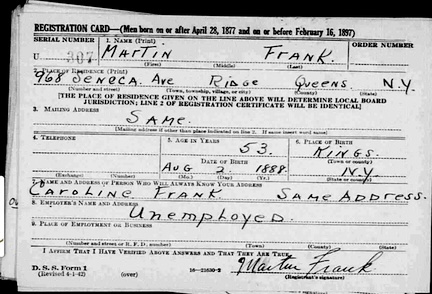 REGISTRATION CARD—(Men born on or after April 28, 1877 and on or before February 16, 1897)
SERIAL NUMBER 1. NAME (Print) ORDER NUMBER
U 307 MARTIN FRANK
(First) (Middle) (Last)
2. PLACE OF RESIDENCE (Print)
968 SENECA AVE RIDGE QUEENS. N.Y.
(Number and street) (Town, township, village, or city) (County) (State)
[THE PLACE OF RESIDENCE GIVEN ON THE LINE ABOVE WILL DETERMINE LOCAL BOARD
JURISDICTION; LINE 2 OF REGISTRATION CERTIFICATE WILL BE IDENTICAL]
3. MAILING ADDRESS
SAME.
[Mailing address if other than place indicated on line 2. If same insert word same]
4. TELEPHONE 5. AGE IN YEARS 6. PLACE OF BIRTH
53. KINGS.
DATE OF BIRTH (Town or county)
AUG 2 1888. N.Y.
(Exchange) (Number) (Mo.) (Day) (Yr.) (State or country)
7. NAME AND ADDRESS OF PERSON WHO WILL ALWAYS KNOW YOUR ADDRESS
CAROLINE FRANK SAME ADDRESS.
8. EMPLOYER'S NAME AND ADDRESS
Unemployed.
9. PLACE OF EMPLOYMENT OR BUSINESS
(Number and street or R. F. D. number) (Town) (County) (State)
I AFFIRM THAT I HAVE VERIFIED ABOVE ANSWERS AND THAT THEY ARE TRUE.
D. S. S. Form 1
(Revised 4-1-42) (over) 16-21630-2 Martin Frank
(Registrant's signature)